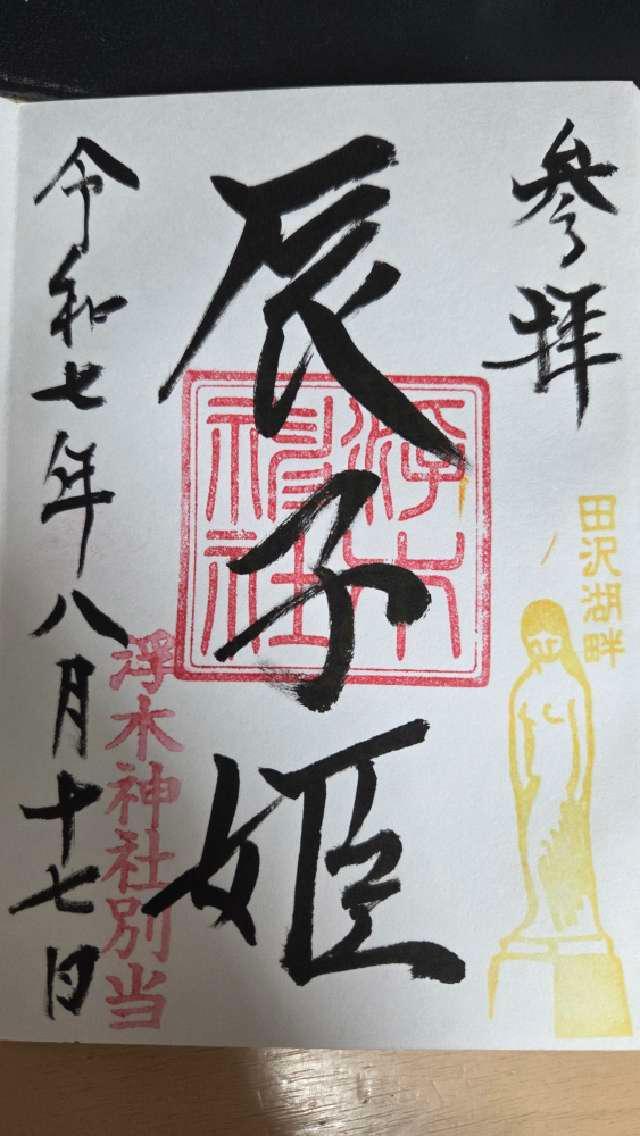 参拝
田沢湖畔
辰子姫
浮木神社
浮木神社別当
令和七年八月十七日